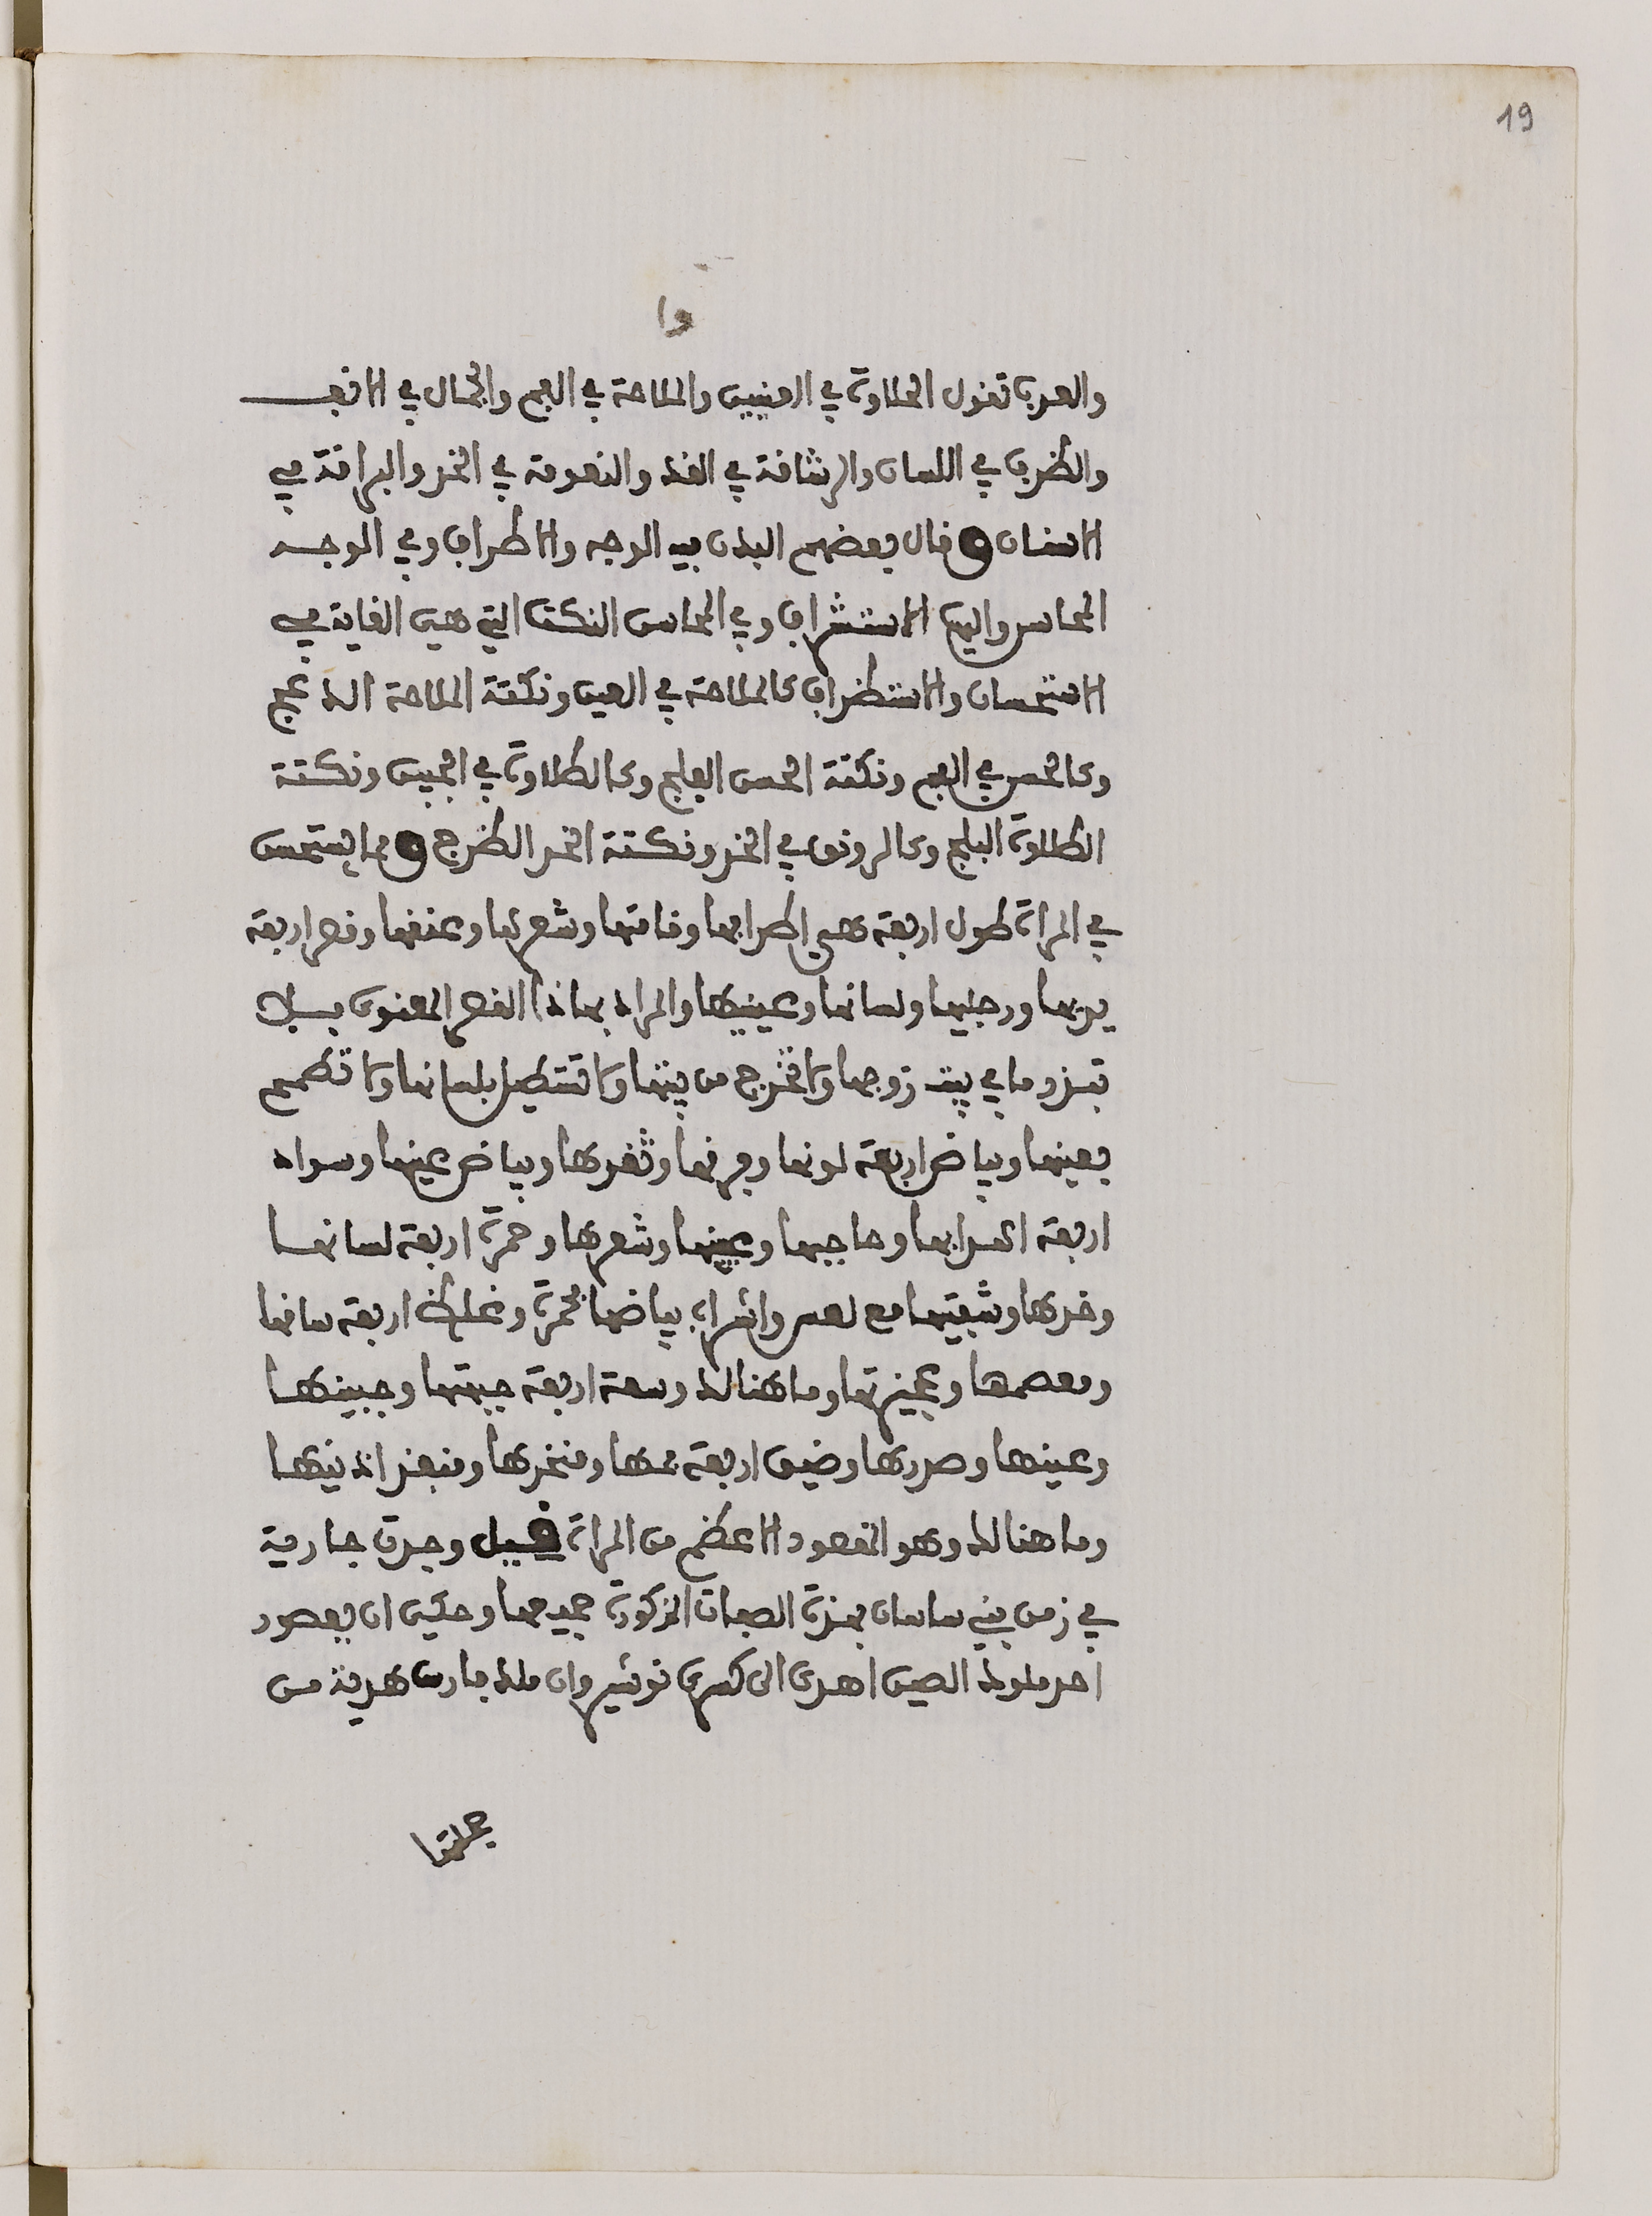 19
وا
والعرب تقول الحلاوة في العينين والملاحة في الفم والجمال في الانف
والظرف في اللسان والرشاقة في القد والنعومة في الخد والبراقة في
الاسنان وقال بعضهم البدن فيه الوجه والاطراف وفي الوجه
المحاسن واليها الاستشراف وفي المحاسن النكت التي هي الغاية في
الاستحسان والاستظراف كالملاحة في العين ونكتة الملاحة الدعج
وكالحسن في الفم ونكتة الحسن الفلج وكالطلاوة في الجبين ونكتة
الطلاوة البلج وكالرونق في الخد ونكتة الخد الضرج ومما يستحسن
في المراة طول اربعة هي اطرافها وقامتها وشعرها وعنقها وقصر اربعة
يدها ورجليها ولسانها وعينيها والمراد بهاذا القصر المعنوى بلا
تبذر ما في بيت زوجها ولا تخرج من بيتها ولا تستطيل بلسانها ولا تطمح
بعينها وبياض اربعة لونها وفرقها وثغرها وبياض عينها وسواد
اربعة اهدابها وحاجبها وعينها وشعرها وحمرة اربعة لسانها
وخدها وشفتيها مع لعس واشراب بياضها بحمرة وغلظ اربعة ساقها
ومعصمها وعجيزتها وما هنالك وسعة اربعة جبهتها وجبينها
وعينها وصدرها وضيق اربعة فمها ومنخرها ومنفذ اذنيها
وما هنالك وهو المقصود الاعظم من المراة قيل وجدت جارية
في زمن بني ساسان بهذه الصفات المذكورة جميعها وحكي ان يعصور
احد ملوك الصين اهدى الى كسرى نوشيروان ملك فارس هدية من
جملتها